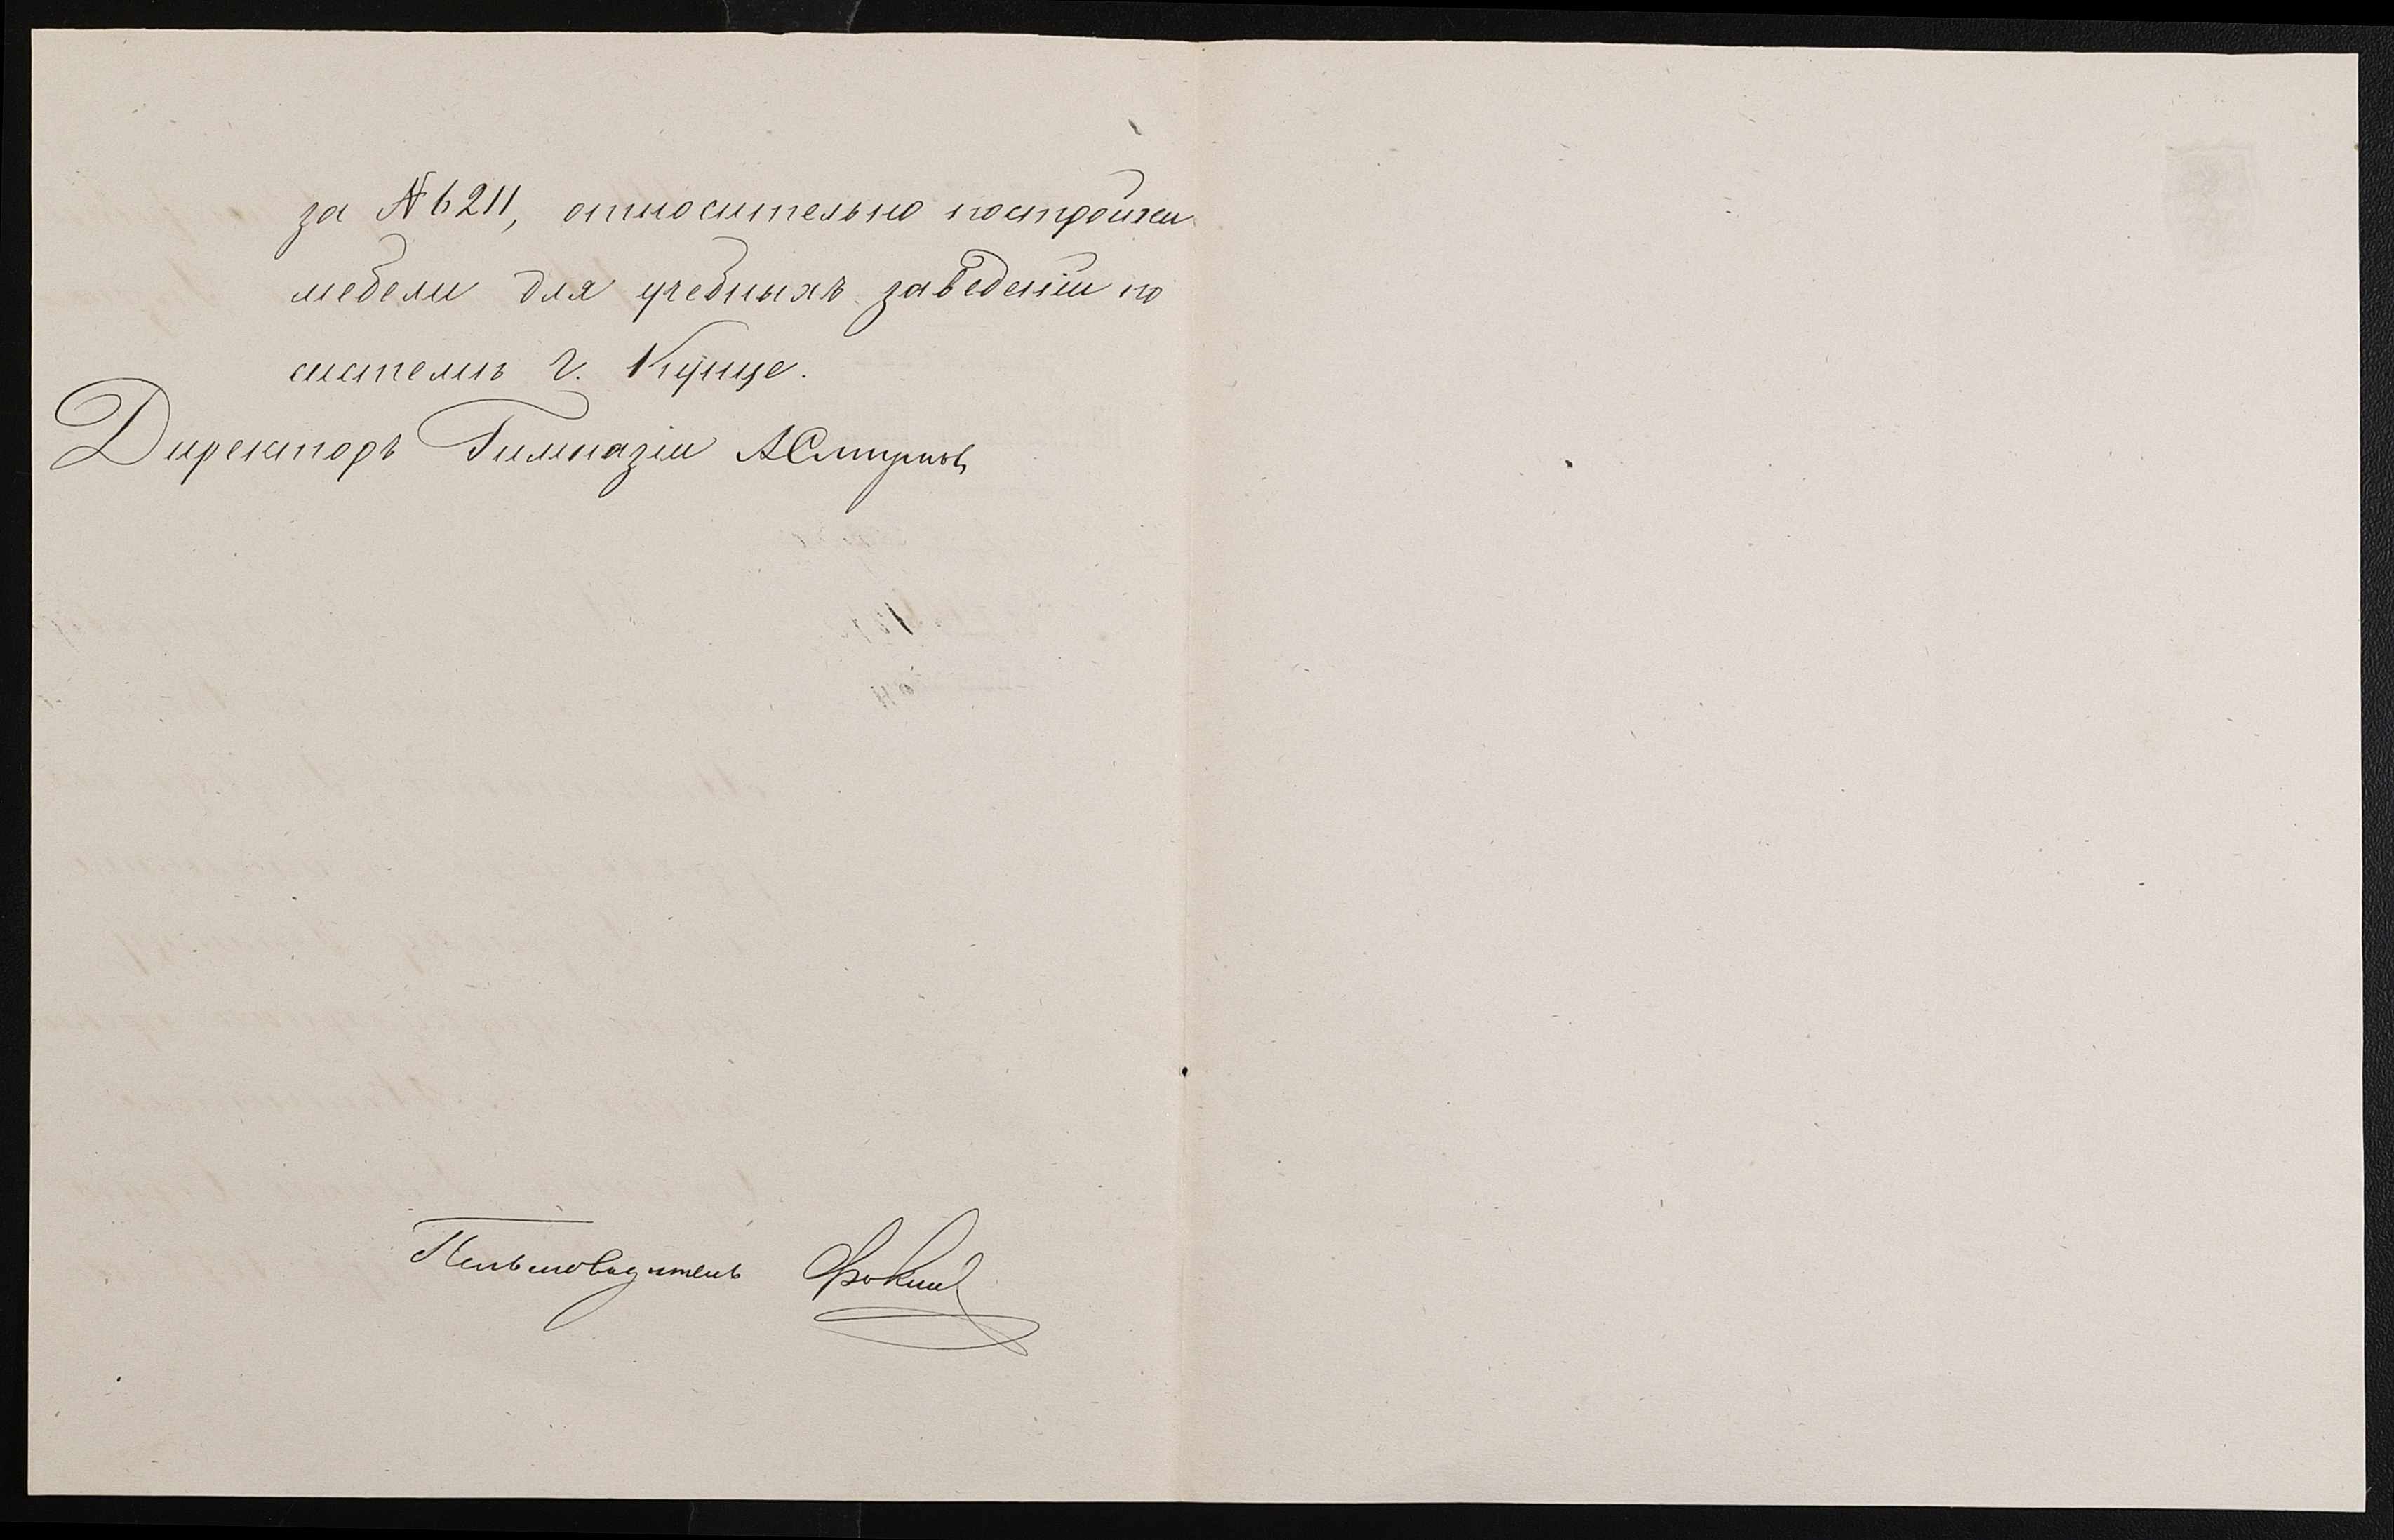 за № 6211, относительно постройки
мебели для учебныхъ заведеній по
системѣ г. Кунце.
Директоръ Гимназіи АСмирнов
Письмоводитель